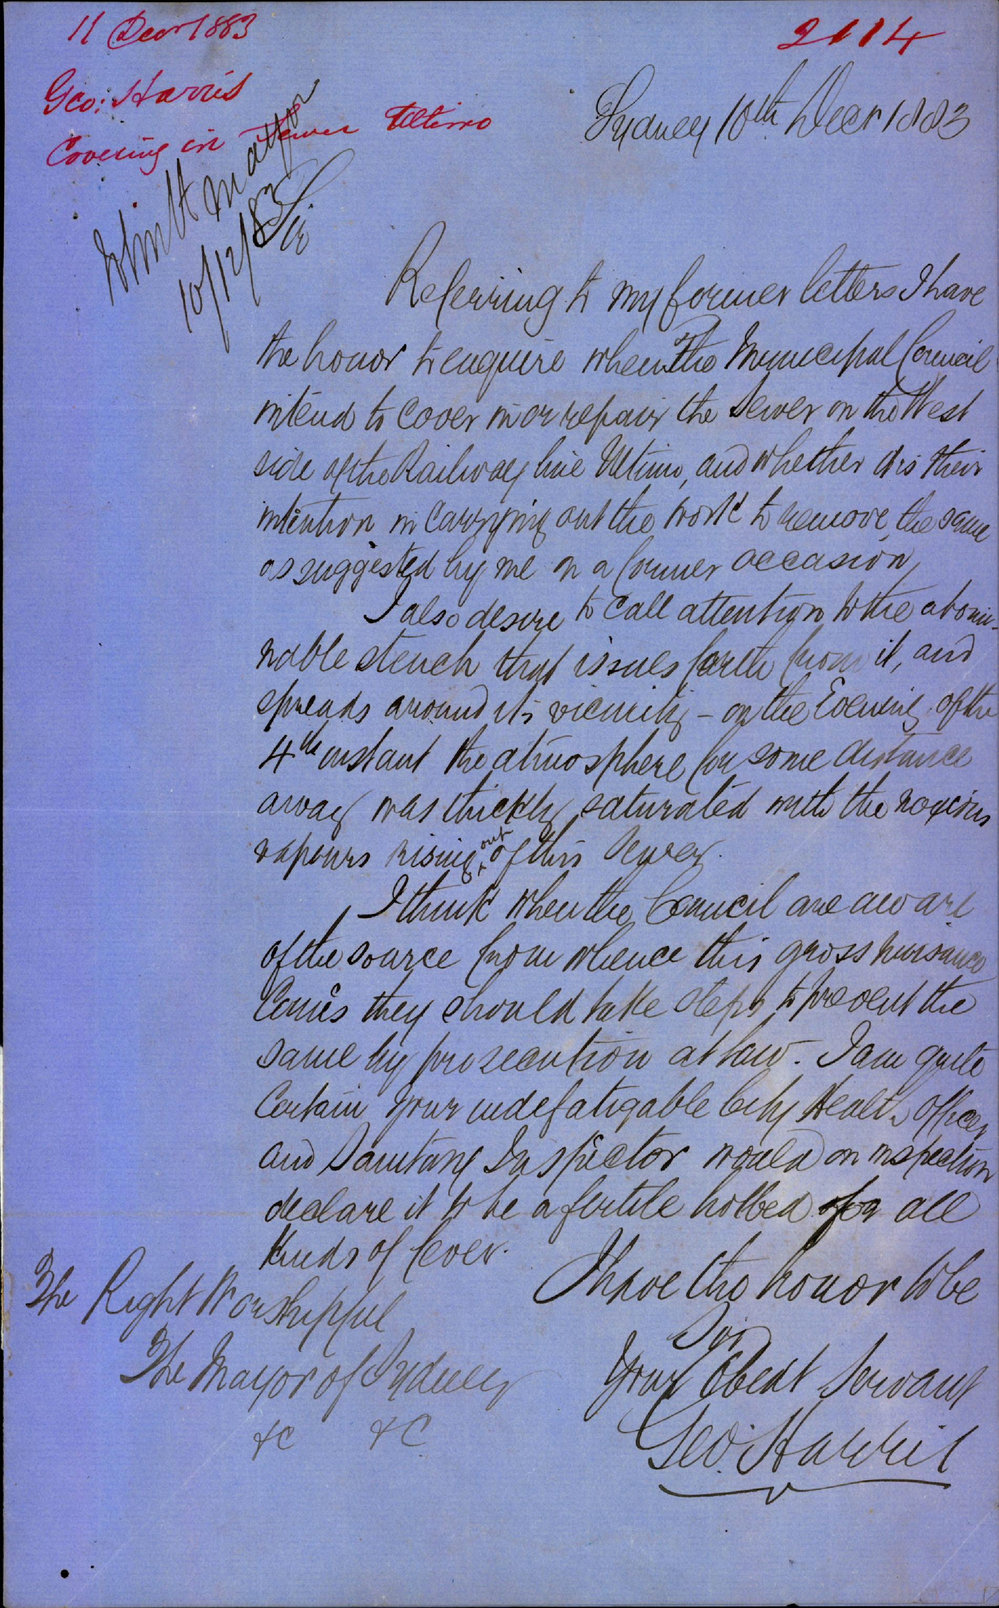 11 Decr 1883
2114
Geo: Harris
Covering in Sewer Ultimo
Sydney 10th Decr 1883
10/12/83
Sir
Referring to my former letters I have
the honor to enquire when the Municipal Council
intend to cover in or repair the Sewer on the West
side of the Railway line Ultimo, and whether it is their
intention in carrying out the work to remove the same
as suggested by me on a former occasion,
I also desire to call attention to the abomi-
nable stench that issues forth from it, and
spreads around its vicinity - on the Evening of the
4th instant the atmosphere for some distance
away was thickly saturated with the noxious
vapours rising out of this Sewer.
I think when the Council are aware
of the source from whence this gross nuisance
comes they should take steps to prevent the
same by prosecution at law. I am quite
Certain your indefatigable City Health Officer
and Sanitary Inspector would on inspection
declare it to be a fertile hotbed for all
kinds of fever.
I have the honor to be
Sir
Your Obedt Servant
Geo. Harris
The Right Worshipful
The Mayor of Sydney
&c &c